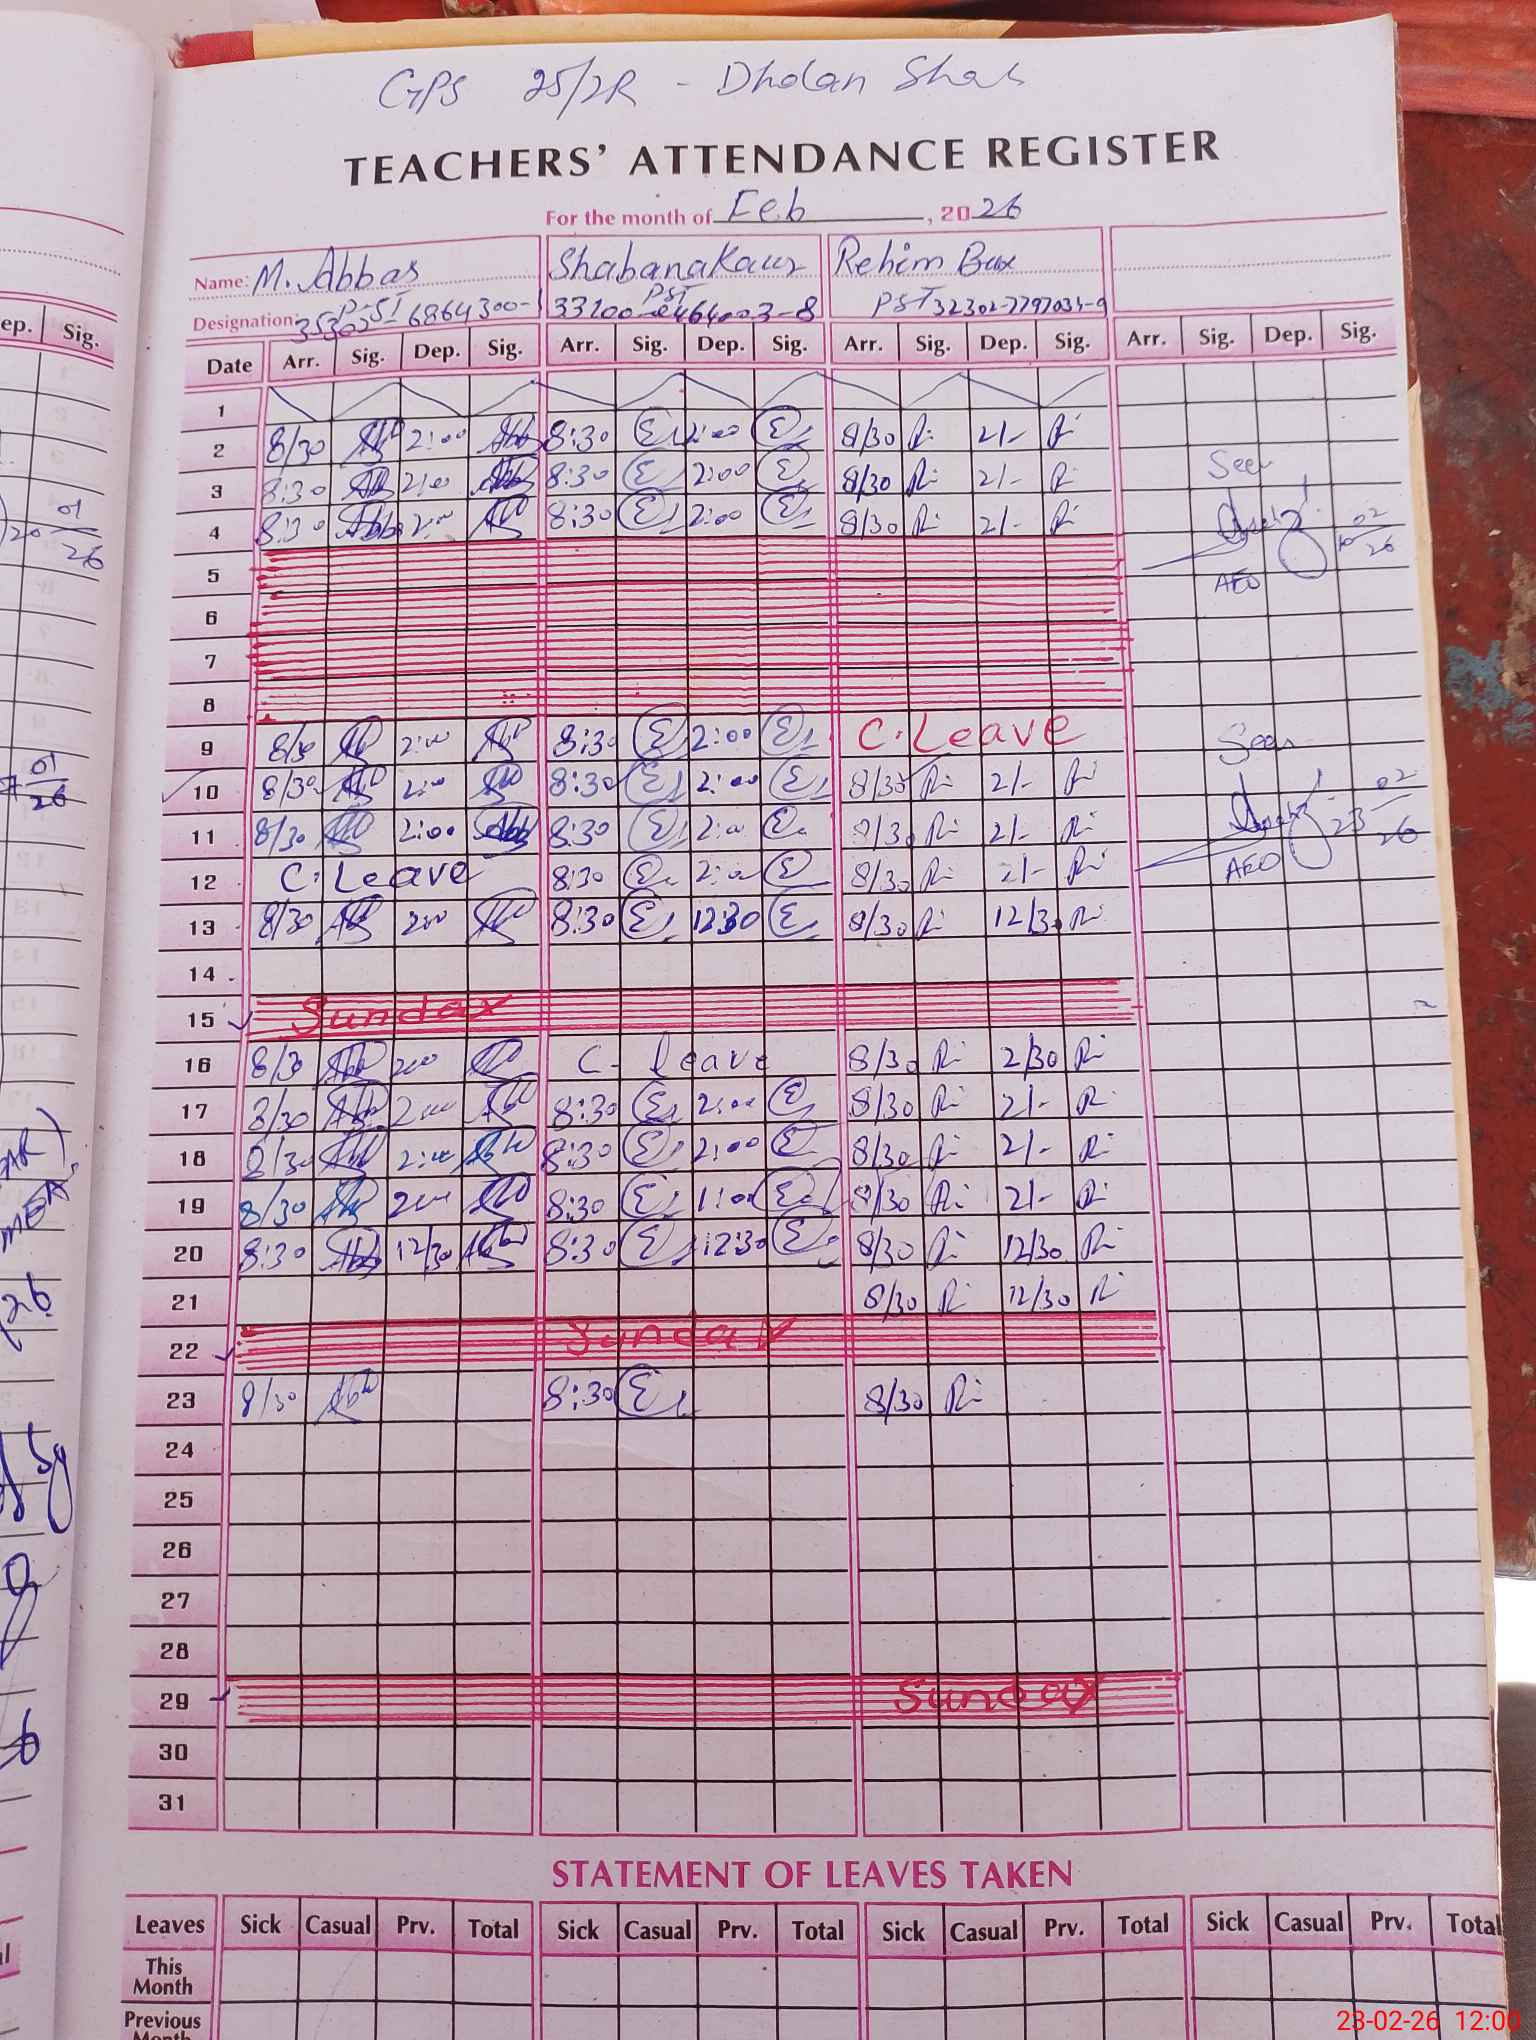 GPS 25/2R - Dholan Shah
TEACHERS' ATTENDANCE REGISTER
For the month of Feb, 2026
Name: M. Abbas Shabana Kausr Rehim Bux
Designation: PST PST PST
Date Arr. Sig. Dep. Sig. Arr. Sig. Dep. Sig. Arr. Sig. Dep. Sig. Arr. Sig. Dep. Sig.
1
2 8/30 2:00 8:30 2:00 8/30 2/-
3 8:30 2:00 8:30 2:00 8/30 2/- Seen
4 8:30 2:00 8:30 2:00 8/30 2/- 10 02 26
5 AEO
6
7
8
9 8/30 2:00 8:30 2:00 C. Leave Seen
10 8/30 2:00 8:30 2:00 8/30 2/-
11 8/30 2:00 8:30 2:00 8/30 2/- 23 02 26
12 C. Leave 8:30 2:00 8/30 2/- AEO
13 8/30 200 8:30 12:30 8/30 12/30
14
15 Sunday
16 8/30 200 C- leave 8/30 2/30
17 8/30 200 8:30 2:00 8/30 2/-
18 8/30 2:00 8:30 2:00 8/30 2/-
19 8/30 200 8:30 1:00 8/30 2/-
20 8:30 12/30 8:30 12:30 8/30 12/30
21 8/30 12/30
22 Sunday
23 8/30 8:30 8/30
24
25
26
27
28
29 Sunday
30
31
STATEMENT OF LEAVES TAKEN
Leaves Sick Casual Prv. Total Sick Casual Prv. Total Sick Casual Prv. Total Sick Casual Prv. Total
This Month
Previous Month
23-02-26 12:00